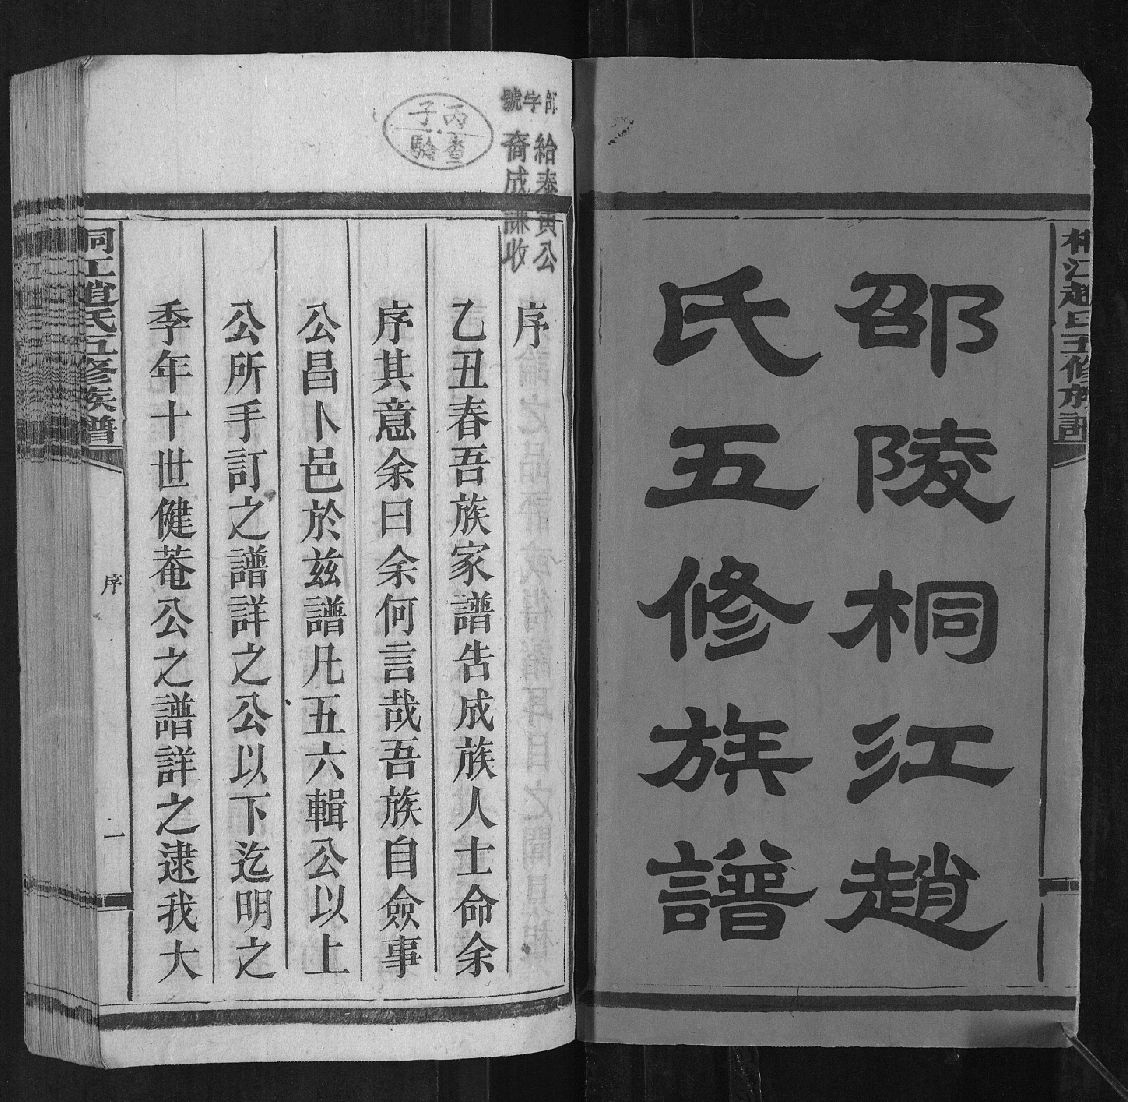 邵陵桐江趙
氏五修族譜
桐江趙氏五修族譜
字號
給泰寅公
裔成謙收
丙子
查驗
序
乙丑春吾族家譜告成族人士命余
序其意余曰余何言哉吾族自僉事
公昌卜邑於兹譜凡五六輯公以上
公所手訂之譜詳之公以下迄明之
季年十世健菴公之譜詳之逮我大
桐江趙氏五修族譜
序
一